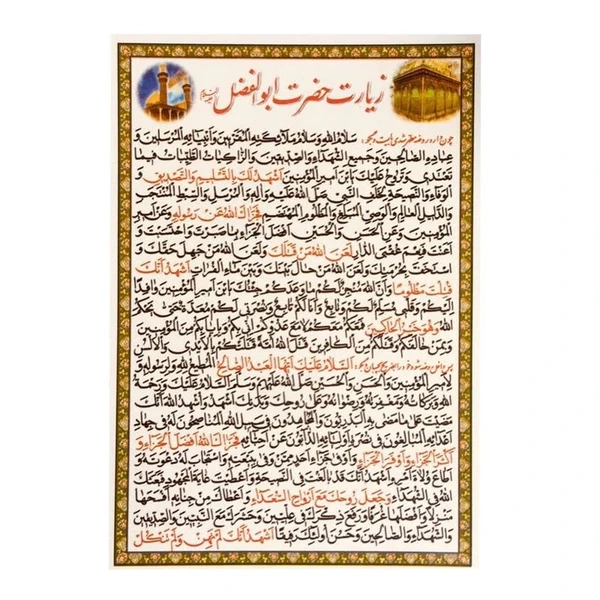 زیارت حضرت ابوالفضل علیه‌السلام
سَلامُ اللهِ وَسَلامُ مَلآئِکَتِهِ الْمُقَرَّبینَ وَاَنْبِیآئِهِ الْمُرْسَلینَ وَ
عِبادِهِ الصّالِحینَ وَجَمیعِ الشُّهَدآءِ وَالصِّدّیقینَ وَالزّاکِیاتُ الطَّیِّباتُ فیما
تَغْتَدی وَتَرُوحُ عَلَیْکَ یَابْنَ اَمیرِالْمُؤْمِنینَ اَشْهَدُ لَکَ بِالتَّسْلیمِ وَالتَّصْدیقِ وَ
الْوَفآءِ وَالنَّصیحَةِ لِخَلَفِ النَّبِیِّ صَلَّی اللهُ عَلَیْهِ وَآلِهِ وَ الْمُرْسَلِ وَالسِّبْطِ الْمُنْتَجَبِ
وَالدَّلیلِ الْعالِمِ وَالْوَصِیِّ الْمُبَلِّغِ وَالْمَظْلُومِ الْمُهْتَضَمِ فَجَزاکَ اللهُ عَنْ رَسُولِهِ وَعَنْ اَمیرِ
الْمُؤْمِنینَ وَعَنِ الْحَسَنِ وَالْحُسَیْنِ اَفْضَلَ الْجَزآءِ بِما صَبَرْتَ وَاحْتَسَبْتَ وَ
اَعَنْتَ فَنِعْمَ عُقْبَی الدّارِ لَعَنَ اللهُ مَنْ قَتَلَکَ وَلَعَنَ اللهُ مَنْ جَهِلَ حَقَّکَ وَ
اسْتَخَفَّ بِحُرْمَتِکَ وَلَعَنَ اللهُ مَنْ حالَ بَیْنَکَ وَبَیْنَ مآءِ الْفُراتِ اَشْهَدُ اَنَّکَ
قُتِلْتَ مَظْلُومًا وَاَنَّ اللهَ مُنْجِزٌ لَکُمْ ما وَعَدَکُمْ جِئْتُکَ یَابْنَ اَمیرِالْمُؤْمِنینَ وافِدًا
اِلَیْکُمْ وَقَلْبی مُسَلِّمٌ لَکُمْ وَتابِعٌ وَاَنَا لَکُمْ تابِعٌ وَنُصْرَتی لَکُمْ مُعَدَّةٌ حَتّی یَحْکُمَ
اللهُ وَهُوَ خَیْرُ الْحاکِمینَ فَمَعَکُمْ مَعَکُمْ لا مَعَ عَدُوِّکُمْ اِنّی بِکُمْ وَبِاِیابِکُمْ مِنَ الْمُؤْمِنینَ
وَبِمَنْ خالَفَکُمْ وَقَتَلَکُمْ مِنَ الْکافِرینَ قَتَلَ اللهُ اُمَّةً قَتَلَتْکُمْ بِالْاَیْدی وَالْاَلْسُنِ
اَلسَّلامُ عَلَیْکَ اَیُّهَا الْعَبْدُ الصّالِحُ الْمُطیعُ لِلّهِ وَلِرَسُولِهِ وَ
لِاَمیرِالْمُؤْمِنینَ وَالْحَسَنِ وَالْحُسَیْنِ صَلَّی اللهُ عَلَیْهِمْ وَسَلَّمَ اَلسَّلامُ عَلَیْکَ وَرَحْمَةُ
اللهِ وَبَرَکاتُهُ وَمَغْفِرَتُهُ وَرِضْوانُهُ وَعَلی رُوحِکَ وَبَدَنِکَ اَشْهَدُ وَاُشْهِدُ اللهَ اَنَّکَ
مَضَیْتَ عَلی ما مَضی بِهِ الْبَدْرِیُّونَ وَالْمُجاهِدُونَ فی سَبیلِ اللهِ الْمُناصِحُونَ لَهُ فی جِهادِ
اَعْدآئِهِ الْمُبالِغُونَ فی نُصْرَةِ اَوْلِیآئِهِ الذّآبُّونَ عَنْ اَحِبّآئِهِ فَجَزاکَ اللهُ اَفْضَلَ الْجَزآءِ وَ
اَکْثَرَ الْجَزآءِ وَاَوْفَرَ الْجَزآءِ وَاَوْفی جَزآءِ اَحَدٍ مِمَّنْ وَفی بِبَیْعَتِهِ وَاسْتَجابَ لَهُ دَعْوَتَهُ وَ
اَطاعَ وُلاةَ اَمْرِهِ اَشْهَدُ اَنَّکَ قَدْ بالَغْتَ فِی النَّصیحَةِ وَاَعْطَیْتَ غایَةَ الْمَجْهُودِ فَبَعَثَکَ
اللهُ فِی الشُّهَدآءِ وَجَعَلَ رُوحَکَ مَعَ اَرْواحِ السُّعَدآءِ وَاَعْطاکَ مِنْ جِنانِهِ اَفْسَحَها
مَنْزِلًا وَاَفْضَلَها غُرَفًا وَرَفَعَ ذِکْرَکَ فی عِلِّیّینَ وَحَشَرَکَ مَعَ النَّبِیّینَ وَالصِّدّیقینَ
وَالشُّهَدآءِ وَالصّالِحینَ وَحَسُنَ اُولئِکَ رَفیقًا اَشْهَدُ اَنَّکَ لَمْ تَهِنْ وَلَمْ تَنْکُلْ